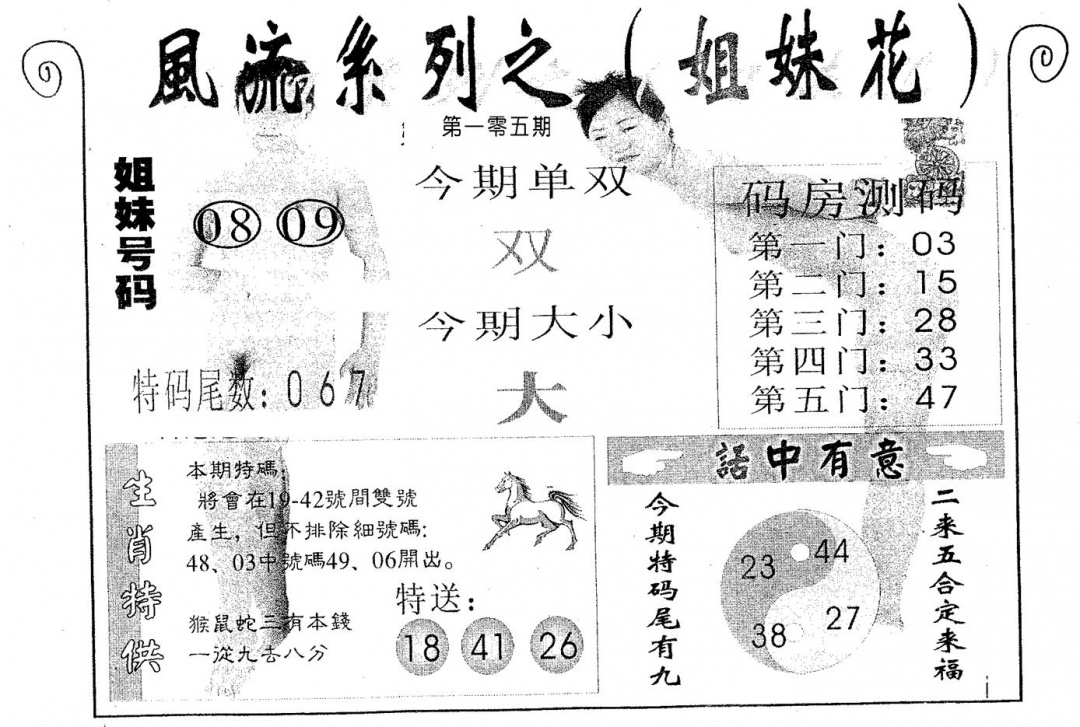 風流系列之（姐妹花）
第一零五期
姐妹号码
08 09
特码尾数：0 6 7
今期单双
双
今期大小
大
码房测码
第一门：03
第二门：15
第三门：28
第四门：33
第五门：47
生肖特供
本期特碼：
將會在19-42號間雙號
產生，但不排除細號碼：
48、03中號碼49、06開出。
猴鼠蛇三有本錢
一從九去八分
特送：
18 41 26
話中有意
今期特码尾有九
23 44
38 27
二来五合定来福